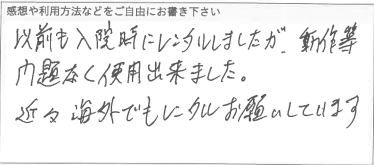 感想や利用方法などをご自由にお書き下さい
以前も入院時にレンタルしましたが、動作等
問題なく使用出来ました。
近々海外でもレンタルお願いしています